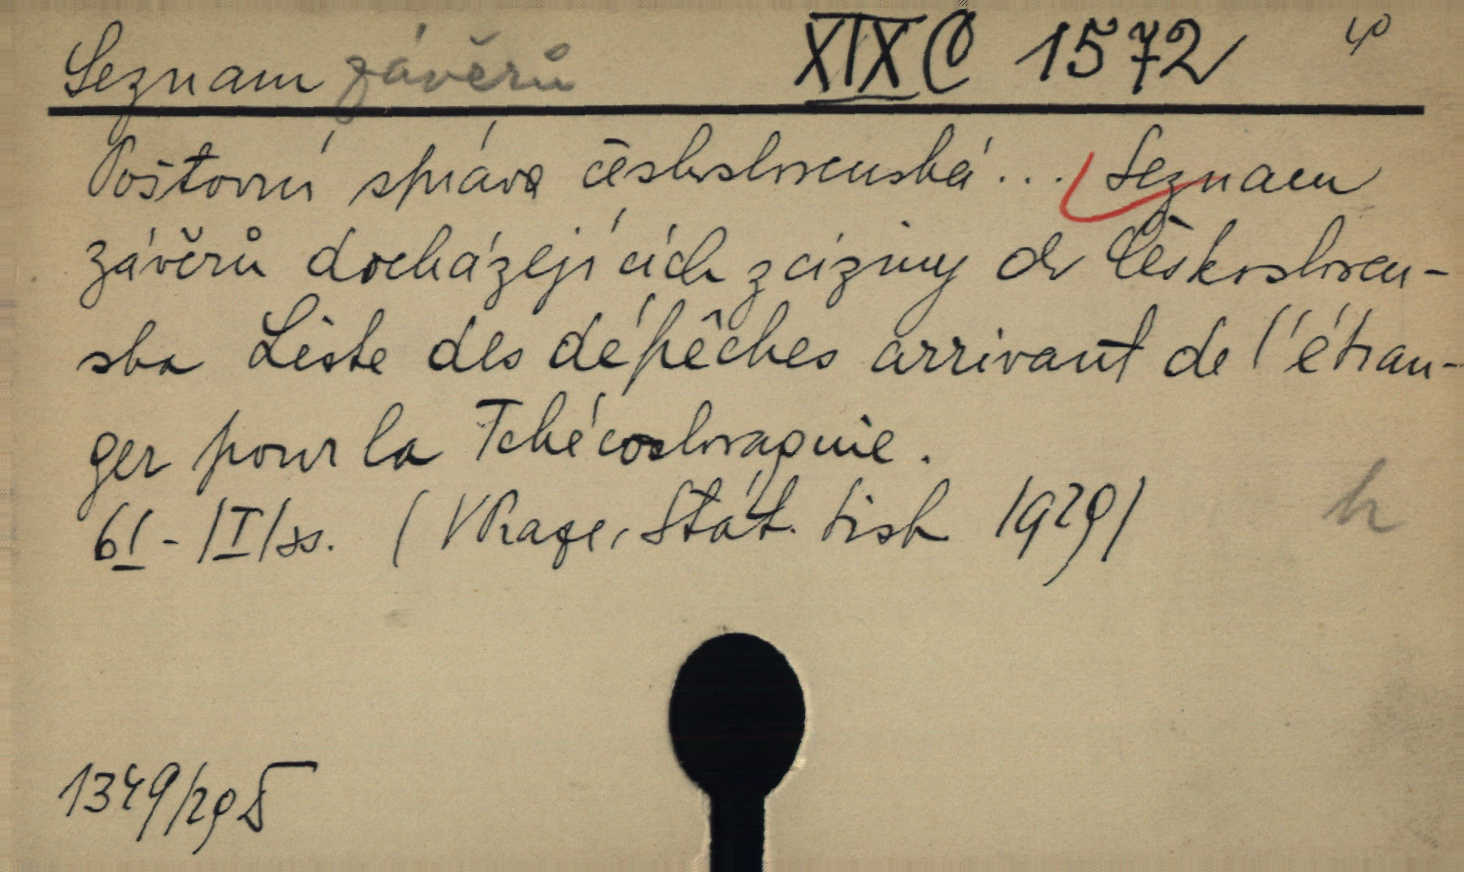 Seznam závěrů XIX C 1572 4°
Poštovní správa československá... Seznam
závěrů docházejících z ciziny do Českosloven-
ska Liste des dépêches arrivant de l'étran-
ger pour la Tchécoslovaquie.
61-/I/ss. (V Praze, Stát. tisk 1929)
h
1349/29